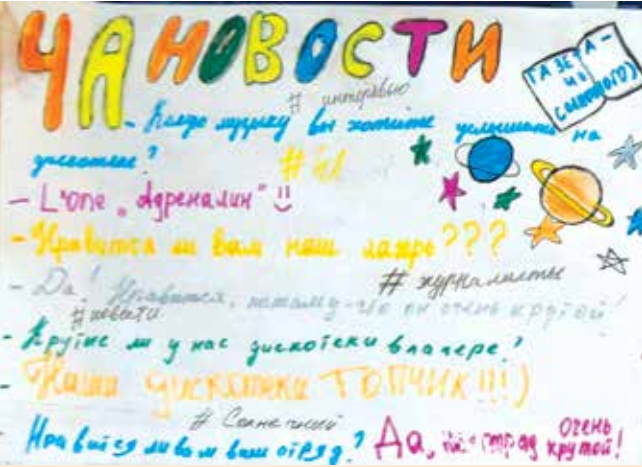 ЧА НОВОСТИ
ГАЗЕТА -
# интервью
- Какую музыку вы хотите услышать на
дискотеке?
# ЧА
- L'one „Адреналин"
- Нравится ли вам наш лагерь???
# журналисты
- Да! Нравится, потому-что он очень крутой!
# новости
- Крутые ли у нас дискотеки в лагере?
- Наши дискотеки ТОПЧИК!!!)
# Солнечный
Нравится ли вам ваш отряд?
Да, отряд очень крутой!